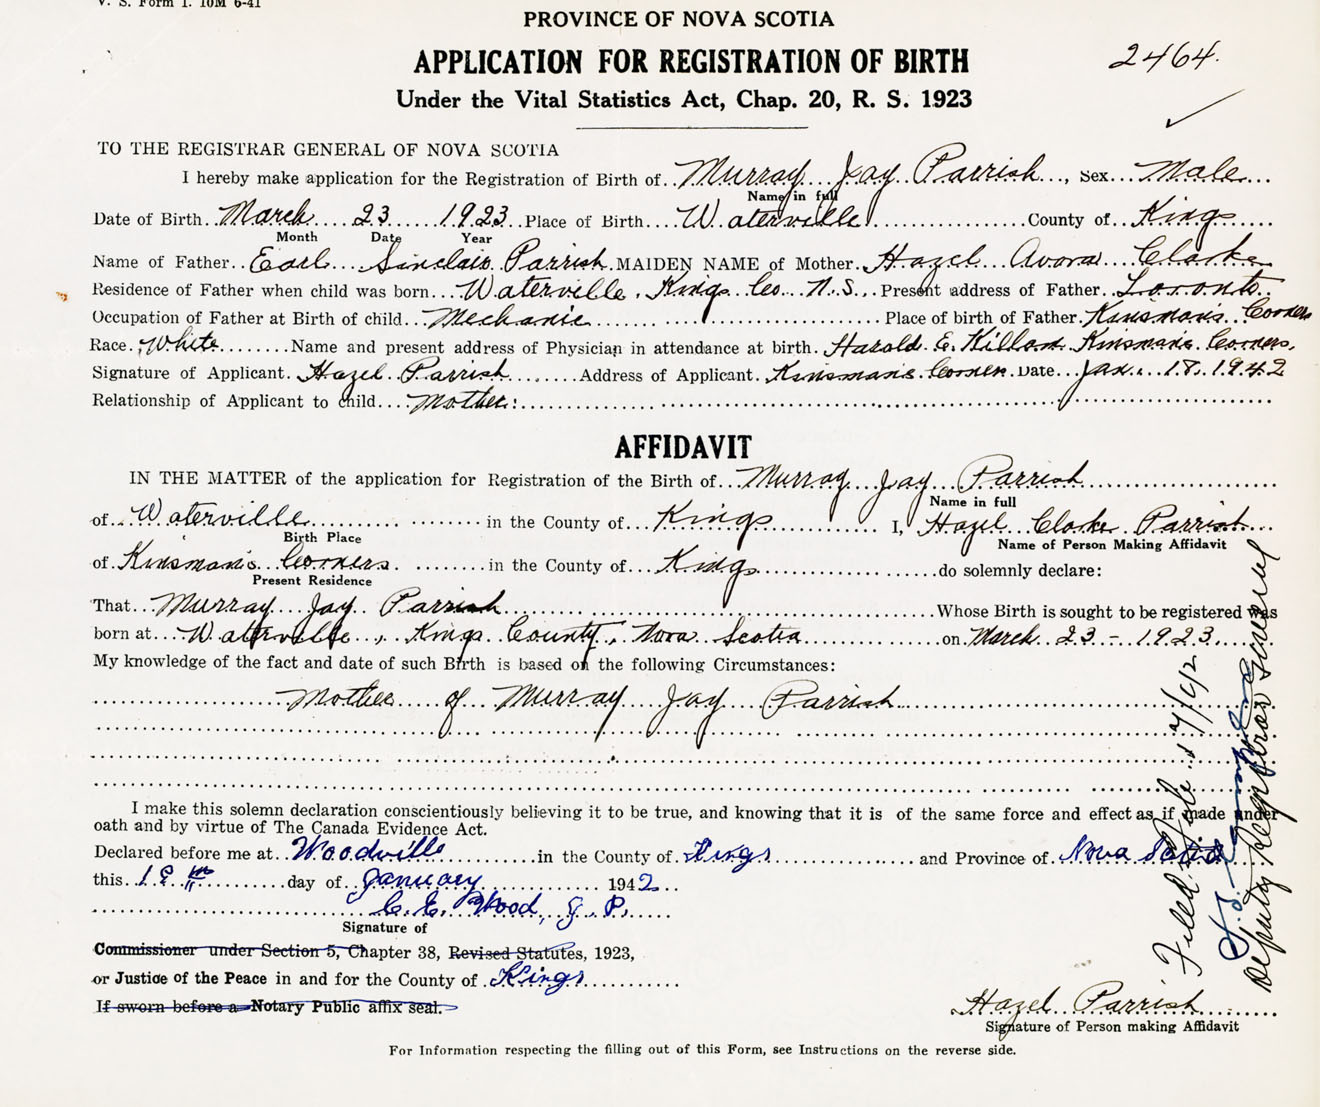 V. S. Form 1. 10M 6-41
PROVINCE OF NOVA SCOTIA
APPLICATION FOR REGISTRATION OF BIRTH
2464.
Under the Vital Statistics Act, Chap. 20, R. S. 1923
TO THE REGISTRAR GENERAL OF NOVA SCOTIA
I hereby make application for the Registration of Birth of Murray Jay Parrish, Sex Male
Name in full
Date of Birth March 23 1923 Place of Birth Waterville County of Kings
Month Date Year
Name of Father Earl Sinclair Parrish MAIDEN NAME of Mother Hazel Avora Clarke
Residence of Father when child was born Waterville, Kings Co. N.S. Present address of Father Toronto
Occupation of Father at Birth of child Mechanic Place of birth of Father Kinsman's Corners
Race White Name and present address of Physician in attendance at birth Harold E. Killam Kinsman's Corners,
Signature of Applicant Hazel Parrish Address of Applicant Kinsman's Corner. Date Jan. 18, 1942
Relationship of Applicant to child Mother:
AFFIDAVIT
IN THE MATTER of the application for Registration of the Birth of Murray Jay Parrish
Name in full
of Waterville in the County of Kings I, Hazel Clarke Parrish
Birth Place Name of Person Making Affidavit
of Kinsman's Corners in the County of Kings do solemnly declare:
Present Residence
That Murray Jay Parrish Whose Birth is sought to be registered was
born at Waterville, Kings County, Nova Scotia on March 23 - 1923
My knowledge of the fact and date of such Birth is based on the following Circumstances:
Mother of Murray Jay Parrish
I make this solemn declaration conscientiously believing it to be true, and knowing that it is of the same force and effect as if made under
oath and by virtue of The Canada Evidence Act.
Declared before me at Woodville in the County of Kings and Province of Nova Scotia
this 18th day of January 1942
C. E. Wood, J. P.
Signature of
Commissioner under Section 5, Chapter 38, Revised Statutes, 1923,
or Justice of the Peace in and for the County of Kings
If sworn before a Notary Public affix seal.
Hazel Parrish
Signature of Person making Affidavit
For Information respecting the filling out of this Form, see Instructions on the reverse side.
Filed Feb. 17/42
Deputy Registrar General